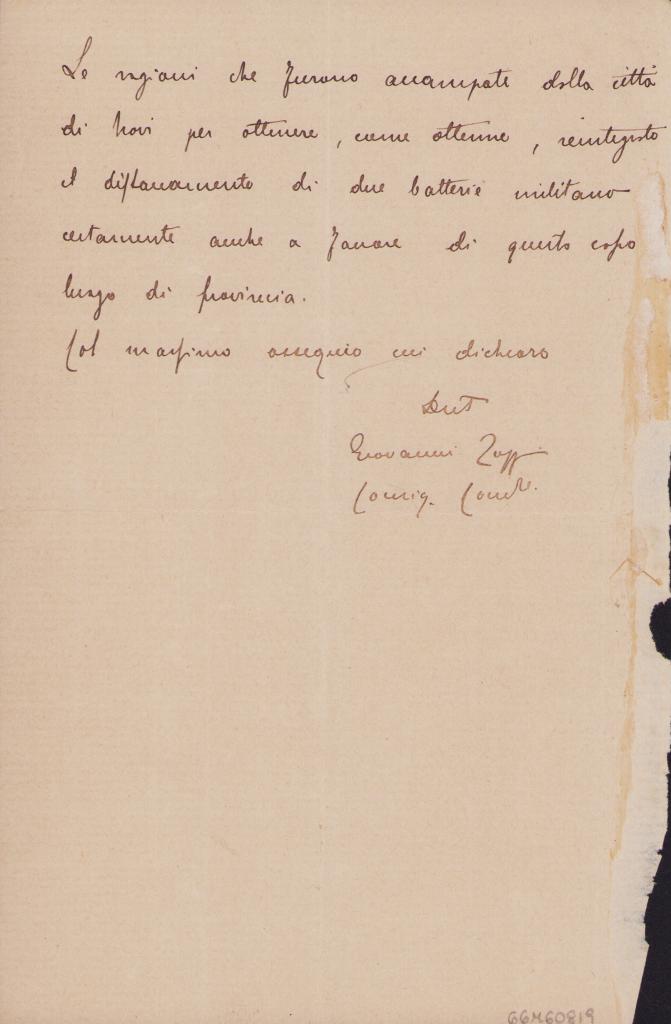 Le ragioni che furono accampate dalla città
di Novi per ottenere, come ottenne, reintegrato
il distaccamento di due batterie militano
certamente anche a favore di questo capo
luogo di provincia.
Col massimo ossequio mi dichiaro
Giovanni
Consig. Com.le
66M60819